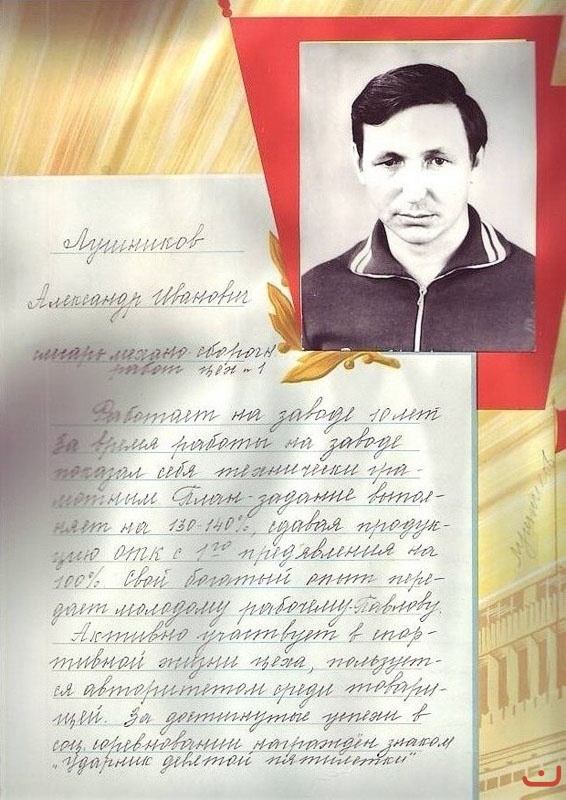 Лушников
Александр Иванович
слесарь механо-сборочн
работ цех-1
Работает на заводе 10 лет
За время работы на заводе
показал себя технически гра-
мотным План-задание выпол-
няет на 130-140%, сдавая продук-
цию ОТК с 1го предъявления на
100% Свой богатый опыт пере-
дает молодому рабочему-Павлову.
Активно участвует в спор-
тивной жизни цеха, пользует-
ся авторитетом среди товари-
щей. За достигнутые успехи в
соц. соревновании награждён знаком
"Ударник девятой пятилетки"